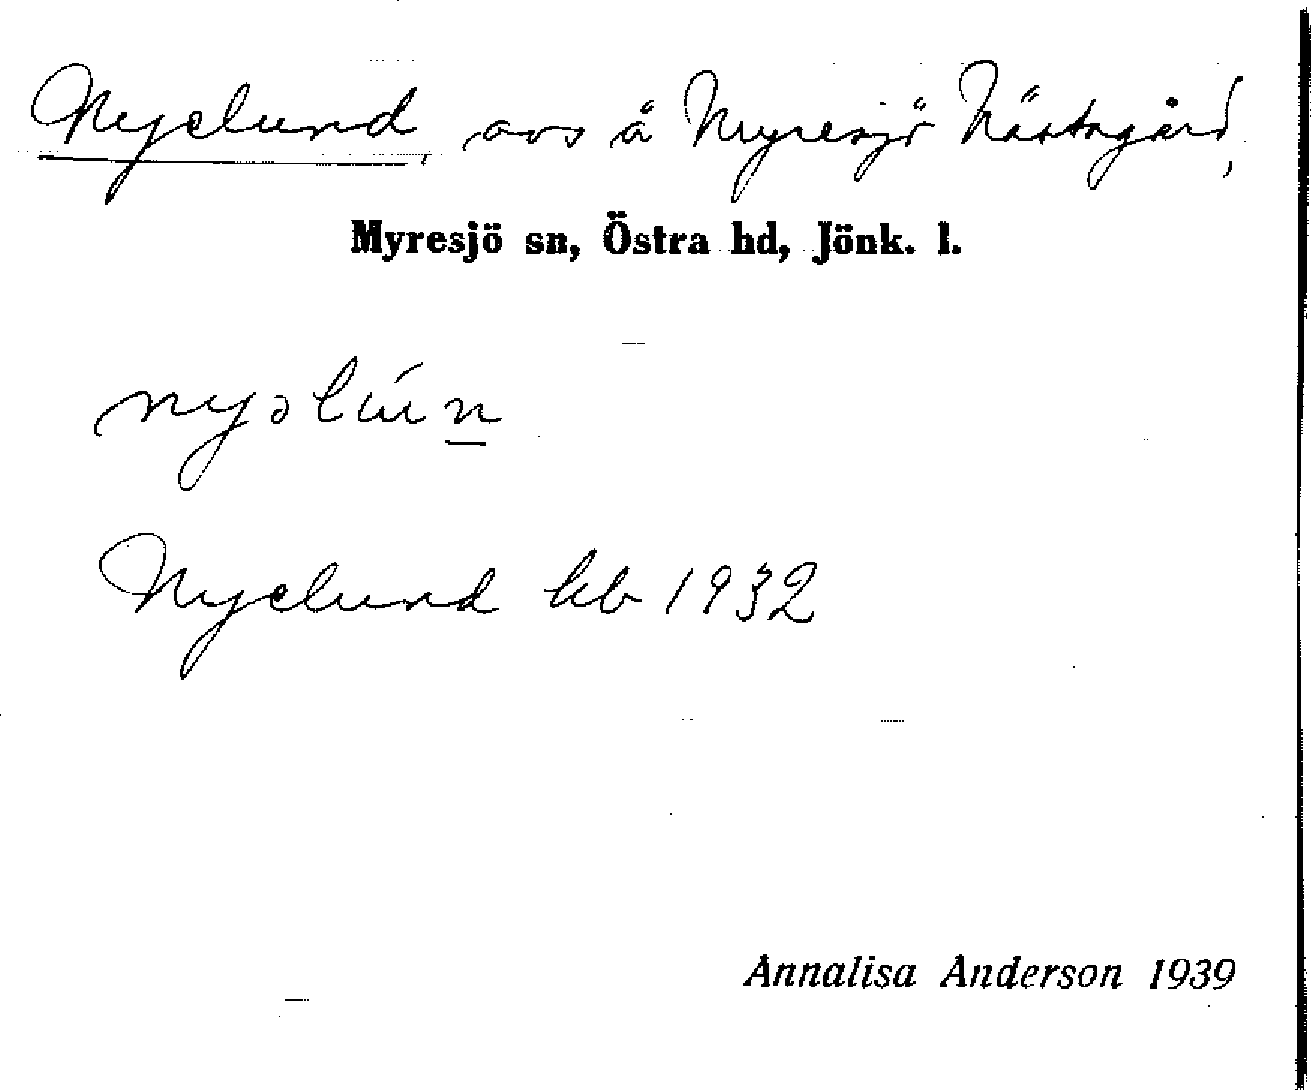 Nyelund, avs å Myresjö Västregård,
Myresjö sn, Östra hd, Jönk. l.
nyəlún
Nyelund kb 1932
Annalisa Anderson 1939